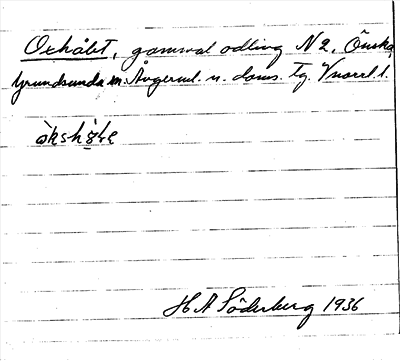 Oxhålet, gammal odling N 2, Önska,
Grundsunda sn. Ångerml. n. doms. tg. Vnorrl l.
òkshò̤le̜
H A Söderberg 1936